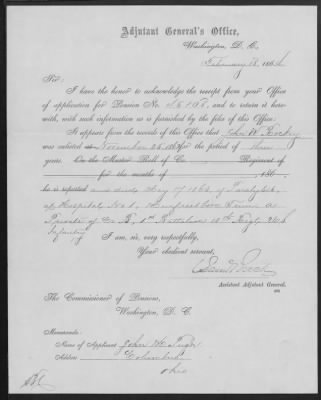 Adjutant General's Office,
Washington, D. C.,
February 18, 1864
Sir:
I have the honor to acknowledge the receipt from your Office
of application for Pension No. 45107, and to return it here-
with, with such information as is furnished by the files of this Office.
It appears from the records of this Office that John W.
was enlisted November 25 for the period of three
years. On the Muster Roll of Co. Regiment of
for the months of , 186 ,
he is reported and died May 17 1862, of Paralysis,
at Hospital No. 1, Tenn a
Private of Co B, 1st Battalion 18th Regt U.S.
Infantry
I am, sir, very respectfully,
Your obedient servant,
Assistant Adjutant General.
The Commissioner of Pensions,
Washington, D. C.
Memoranda:
Name of Applicant John W.
Address Columbus
Ohio